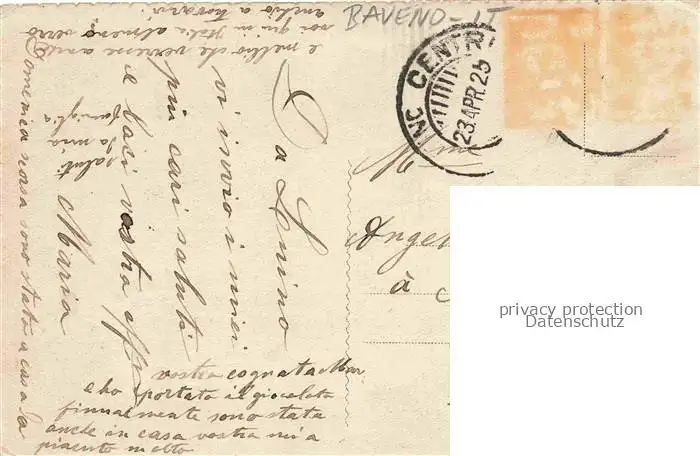 BAVENO-IT
CENTR
23.APR.25
Da Luino
vi invio i miei
più cari saluti
e baci vostra aff
Maria
saluti
da mia
famiglia
Domenica scorsa sono stata a casa la
vostra cognata Mar
e ho portato il giocolata
finualmente sono stata
anche in casa vostra mi a
piaciuto molto
e melio che verrese anche
voi qui in Italia almeno verro
anche a trovarvi
M
Angel
à
privacy protection
Datenschutz